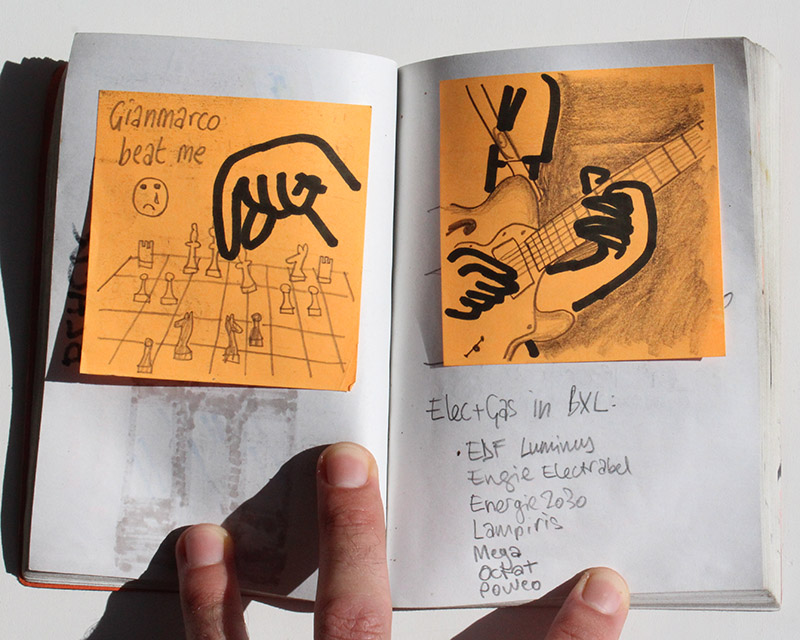 Gianmarco
beat me
Elec+Gas in BXL:
• EDF Luminus
Engie Electrabel
Energie 2030
Lampiris
Mega
Octa+
Poweo